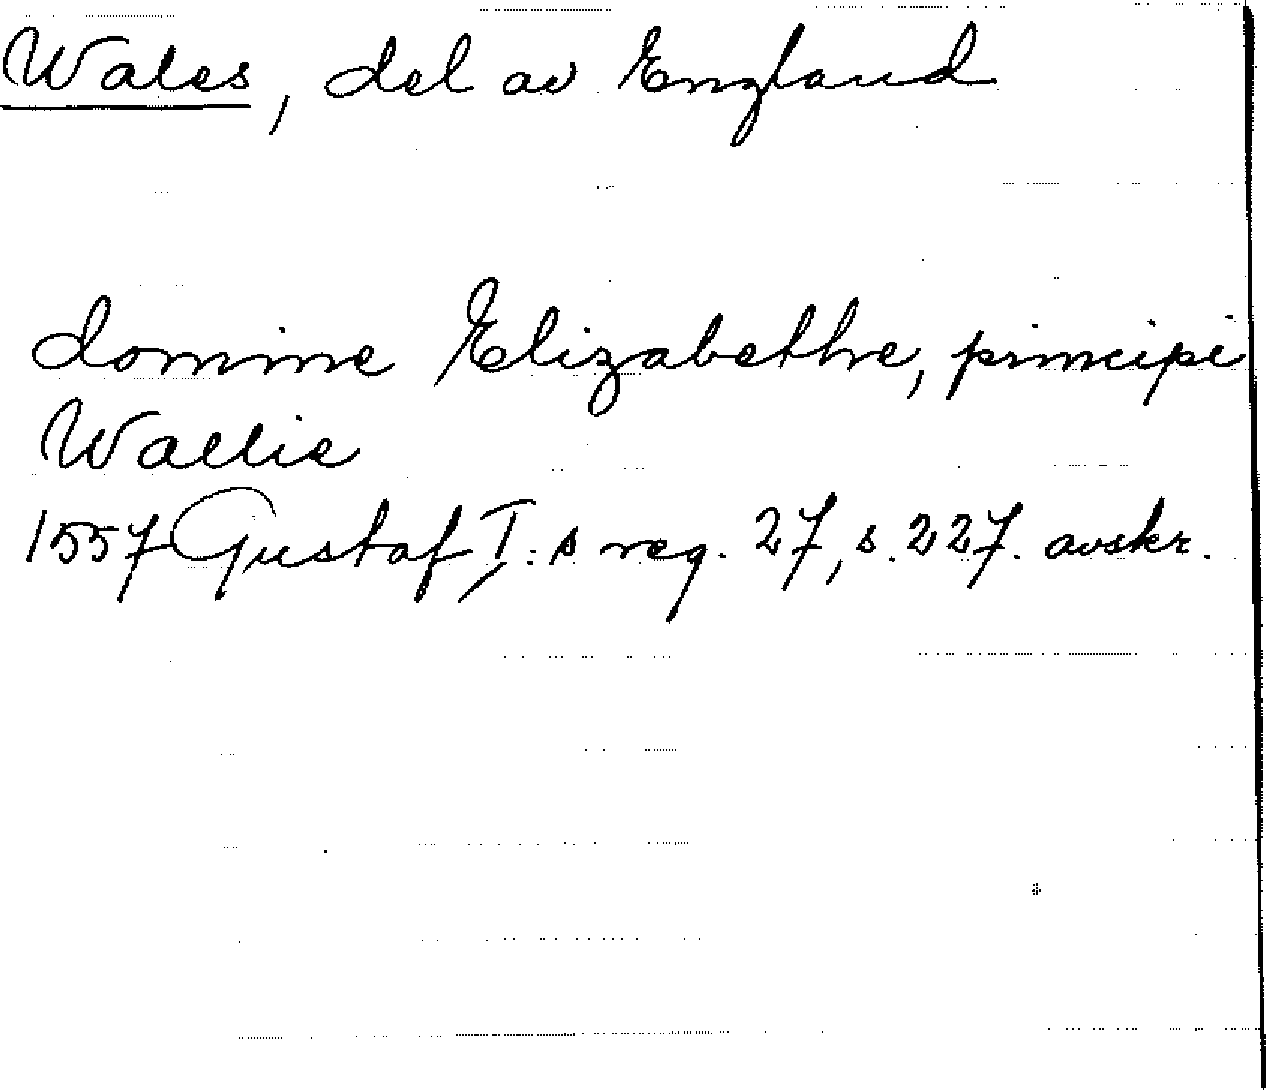 Wales, del av England
domine Elizabethe, principi
Wallie
1557 Gustaf I:s reg. 27, s. 227. avskr.